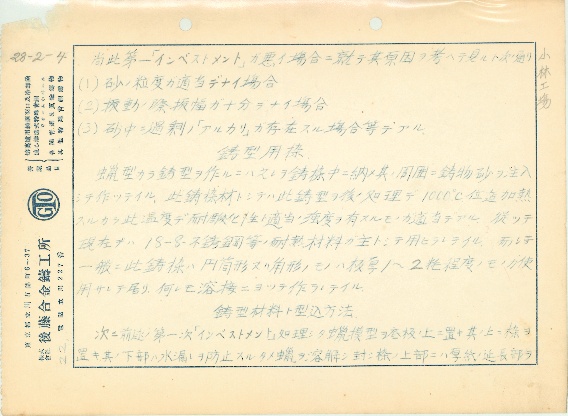 28-2-4
小林工場
当此第一「インベストメント」ガ悪イ場合ニ就テ其原因ヲ考ヘテ見ルト次ノ通リ
(1) 砂ノ粒度ガ適当デナイ場合
(2) 振動ノ際振幅ガ十分デナイ場合
(3) 砂中ニ過剰ノ「アルカリ」ガ存在スル場合等デアル
鋳型用様
蠟型カラ鋳型ヲ作ルニハ之ヲ鋳様中ニ納メ其ノ周囲ニ鋳物砂ヲ注入
シテ作ッテイル. 此鋳様材トシテハ此鋳型ヲ後ノ処理デ1000°C位迄加熱
スルカラ此温度デ耐酸化性ト適当ノ強度ヲ有スルモノガ適当デアル 従ッテ
現在デハ 18-8 不銹鋼等ノ耐熱材料ガ主トシテ用ヒラレテイル. 而シテ
一般ニ此鋳様ハ円筒形又ハ角形ノモノハ板厚1〜2粍程度ノモノガ使
用サレテ居リ, 何レモ溶接ニヨッテ作ラレテイル.
鋳型材料ト型込方法
次ニ前述ノ第一次「インベストメント」処理シタ蠟模型ヲ溶板ノ上ニ置キ其ノ上ニ様ヲ
置キ其ノ下部ハ水漏レヲ防止スルタメ蠟ヲ溶解シ封ジ様ノ上部ニハ厚紙ノ延長部ヲ
株式会社 後藤合金鑄工所
東京都